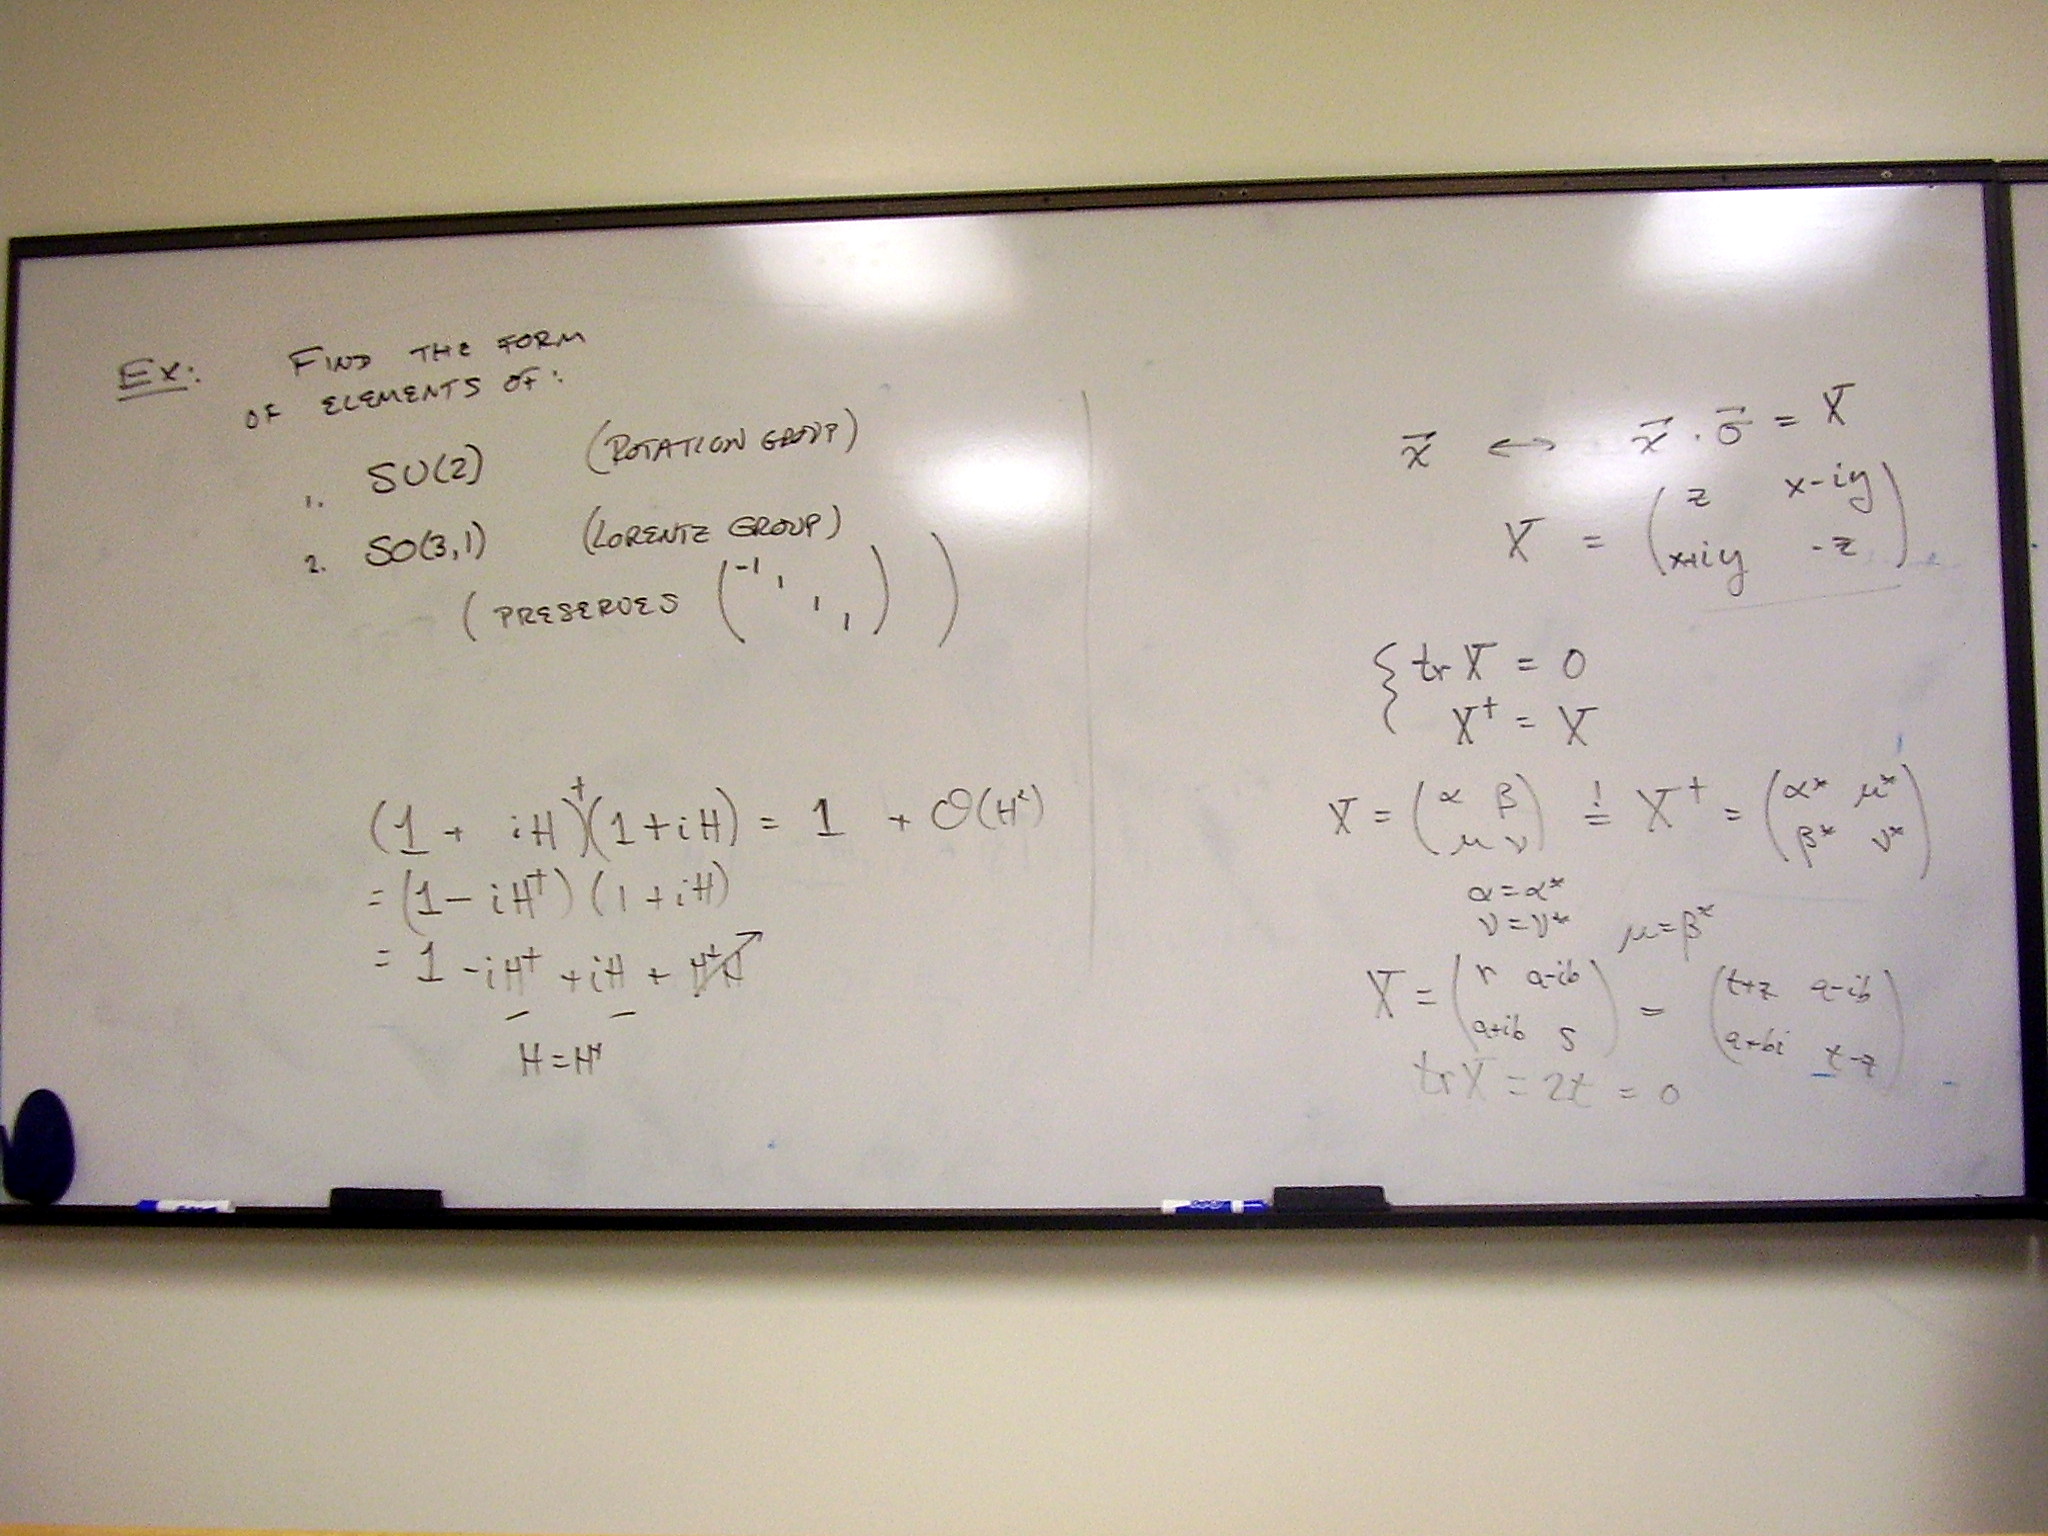 Ex: FIND THE FORM
OF ELEMENTS OF:
1. SU(2) (ROTATION GROUP)
2. SO(3,1) (LORENTZ GROUP)
( PRESERVES (-1, 1, 1, 1) )
(1 + iH)†(1+iH) = 1 + O(H²)
= (1 - iH†) (1 + iH)
= 1 - iH† + iH + H†H
H = H†
x⃗ ↔ x⃗ · σ⃗ = X
X = ( z x-iy
x+iy -z )
{ tr X = 0
X† = X
X = ( α β
μ ν ) =! X† = ( α* μ*
β* ν* )
α = α*
ν = ν* μ = β*
X = ( r a-ib
a+ib s ) = ( t+z a-ib
a+bi t-z )
tr X = 2t = 0